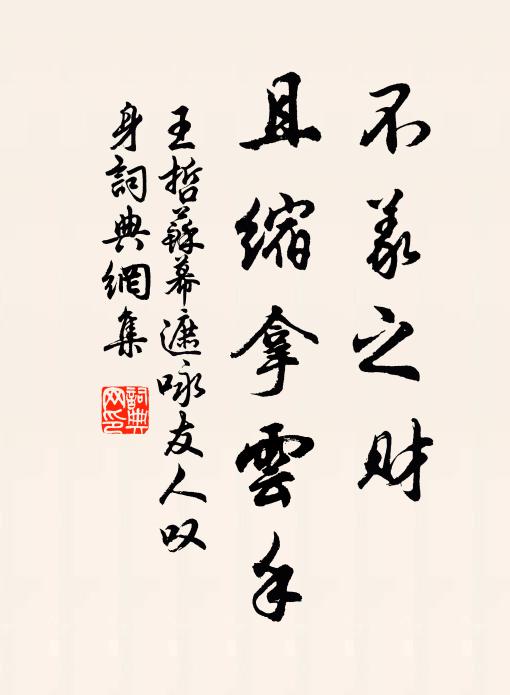 不义之财
且缩拿雲手
王哲蘇幕遮咏友人叹
身詞典網集
詞典
网印